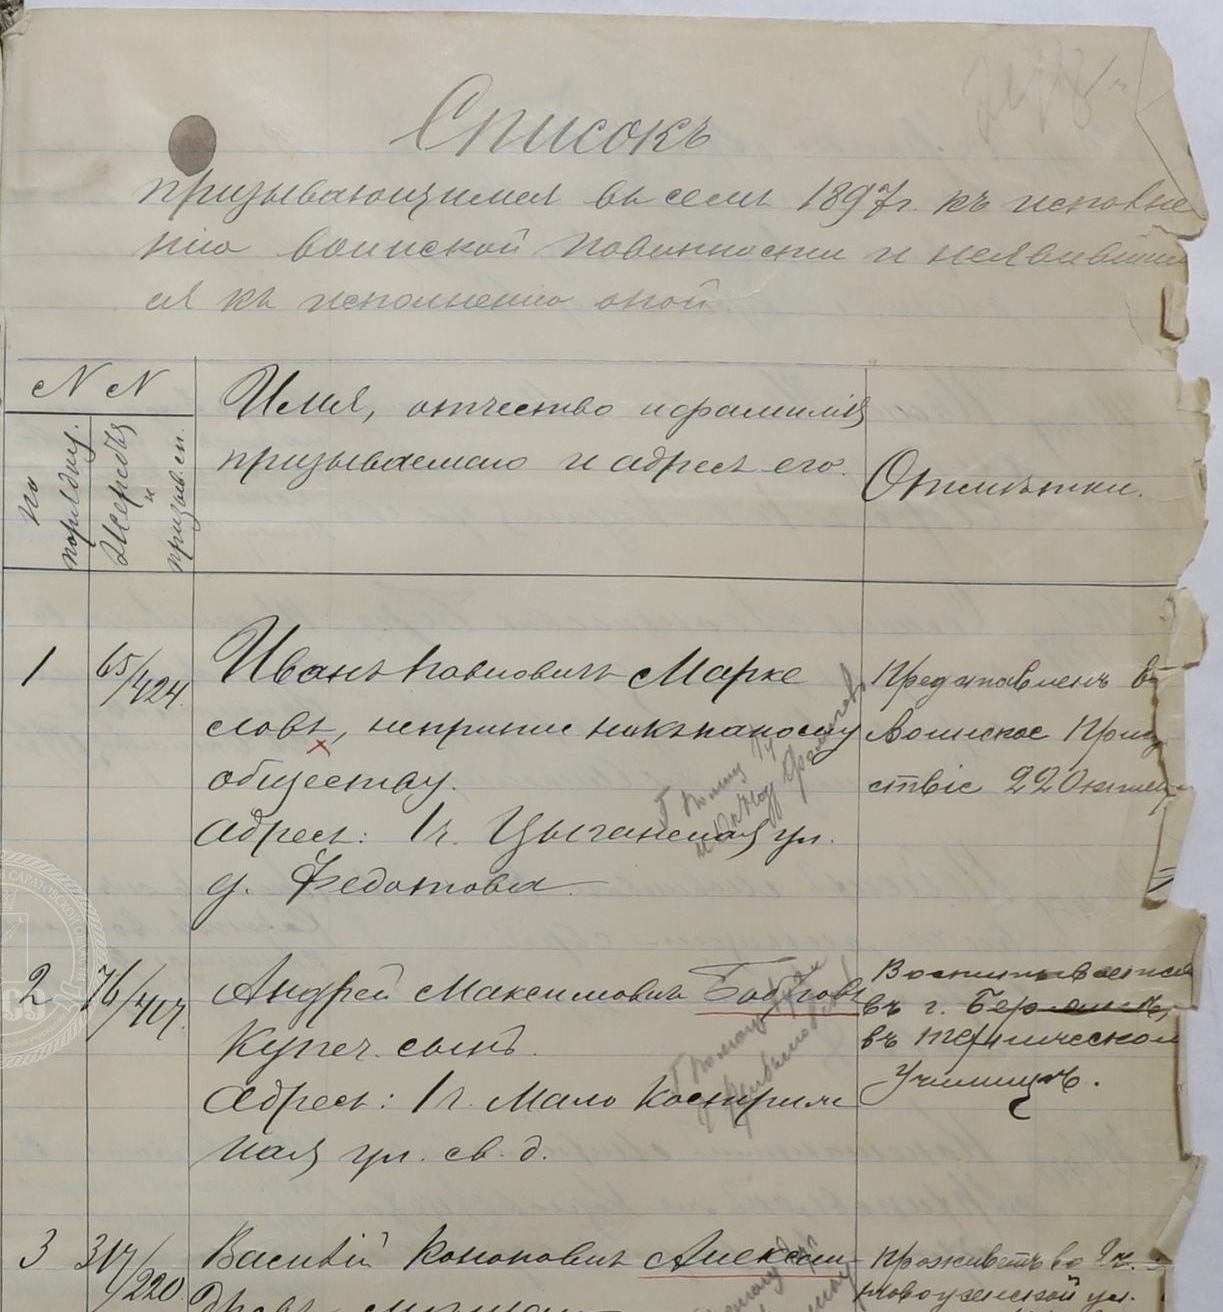 Списокъ
призывающимся въ семъ 1897 г. къ исполне
нію воинской повинности и неявившим
ся къ исполненію оной.
N N
по порядку.
Жеребья и призыв. сп.
Имя, отчество и фамилія
призываемаго и адресъ его.
Отмѣтки.
1
65/424.
Иванъ Павловичъ Марке
ловъ, неприпис никъ какому
обществу.
адресъ: 1 ч. Цыганская ул.
д. Федотова
Представленъ въ
Воинское Прису
ствіе 22 Октяб
2
76/407.
Андрей Максимовичъ Бобровъ
Купеч. сынъ.
Адресъ: 1 ч. Мало Кострим
ная ул. св. д.
Воспитывается
въ г.
въ техническом
Училищѣ.
3
317/220.
Василій Кононовичъ Алексан
дровъ
Проживетъ во 2 ч.
Новоузенской ул.
САРАТОВСКОЙ ОБЛАСТИ